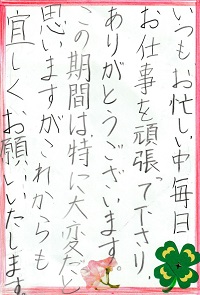 いつもお忙しい中毎日
お仕事を頑張って下さり、
ありがとうございます。
この期間は特に大変だと
思いますがこれからも
宜しくお願いいたします